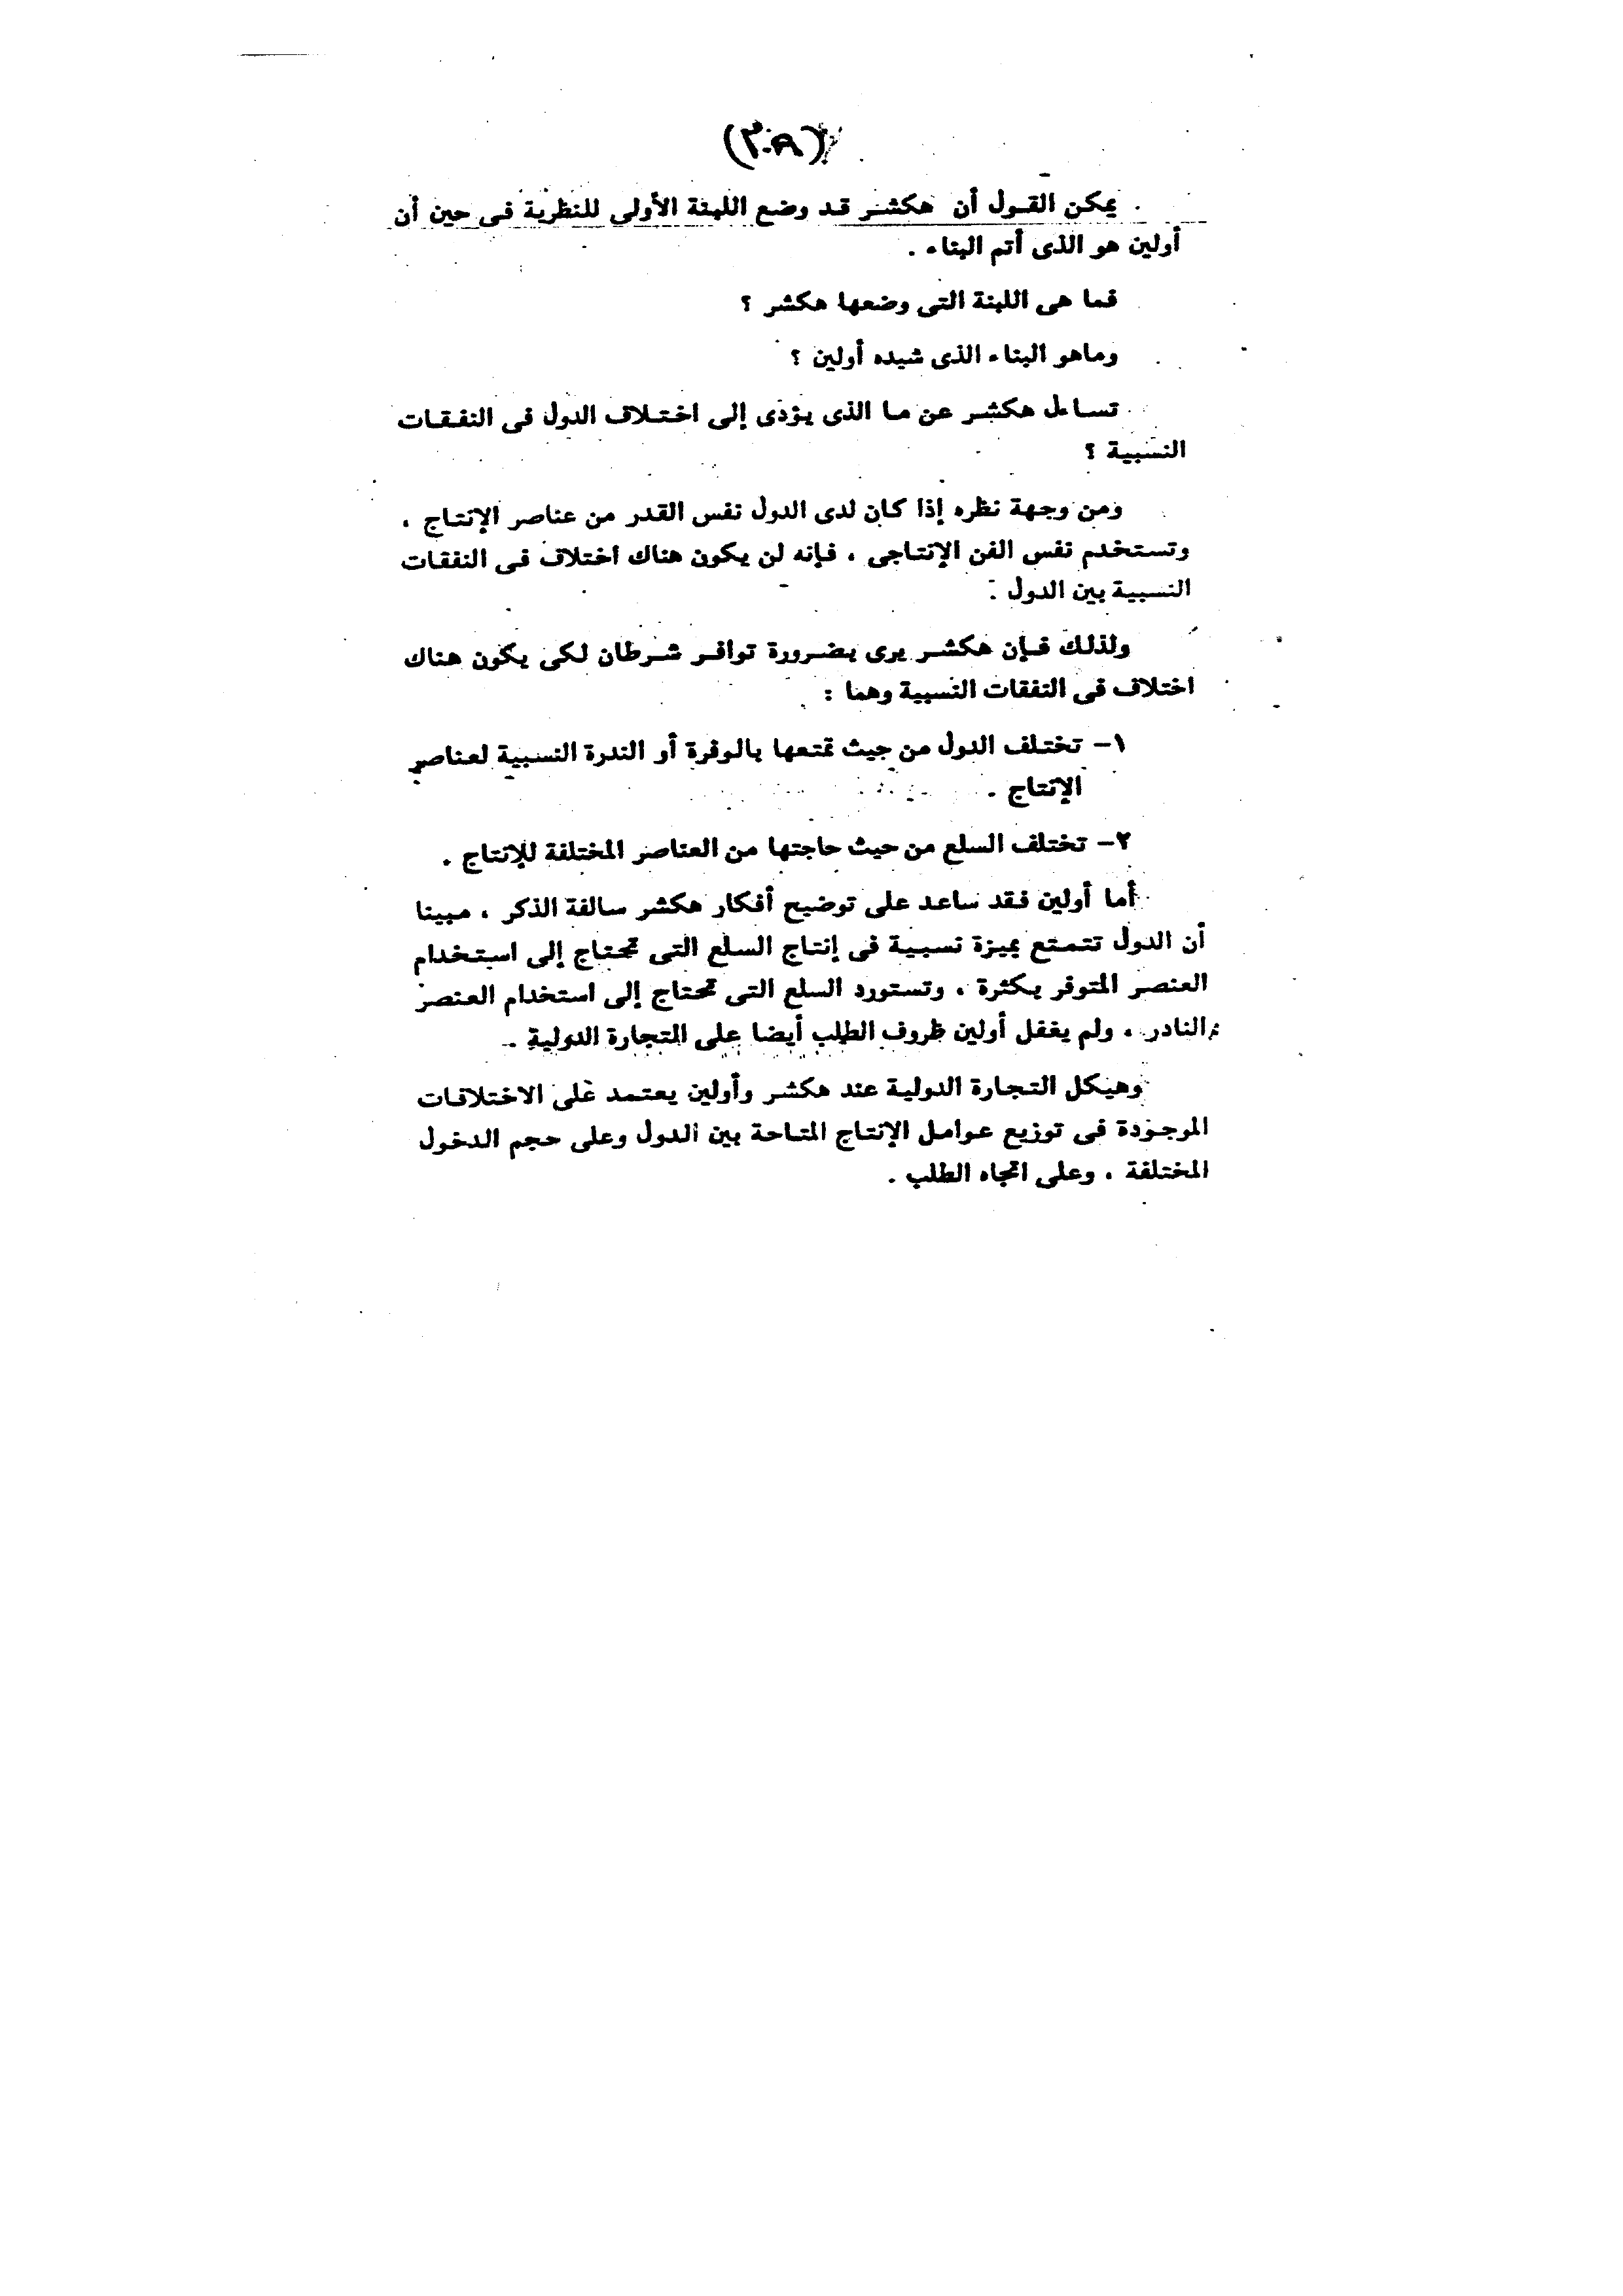 (٣٠٨)
يمكن القول أن هكشر قد وضع اللبنة الأولى للنظرية فى حين أن
أولين هو الذى أتم البناء .
فما هى اللبنة التى وضعها هكشر ؟
وماهو البناء الذى شيده أولين ؟
تساءل هكشر عن ما الذى يؤدى إلى اختلاف الدول فى النفقات
النسبية ؟
ومن وجهة نظره إذا كان لدى الدول نفس القدر من عناصر الإنتاج ،
وتستخدم نفس الفن الإنتاجى ، فإنه لن يكون هناك اختلاف فى النفقات
النسبية بين الدول .
ولذلك فإن هكشر يرى بضرورة توافر شرطان لكى يكون هناك
اختلاف فى النفقات النسبية وهما :
١- تختلف الدول من حيث تمتعها بالوفرة أو الندرة النسبية لعناصر
الإنتاج .
٢- تختلف السلع من حيث حاجتها من العناصر المختلفة للإنتاج .
أما أولين فقد ساعد على توضيح أفكار هكشر سالفة الذكر ، مبينا
أن الدول تتمتع بميزة نسبية فى إنتاج السلع التى تحتاج إلى استخدام
العنصر المتوفر بكثرة ، وتستورد السلع التى تحتاج إلى استخدام العنصر
النادر ، ولم يغفل أولين ظروف الطلب أيضا على التجارة الدولية .
وهيكل التجارة الدولية عند هكشر وأولين يعتمد على الاختلافات
الموجودة فى توزيع عوامل الإنتاج المتاحة بين الدول وعلى حجم الدخول
المختلفة ، وعلى اتجاه الطلب .